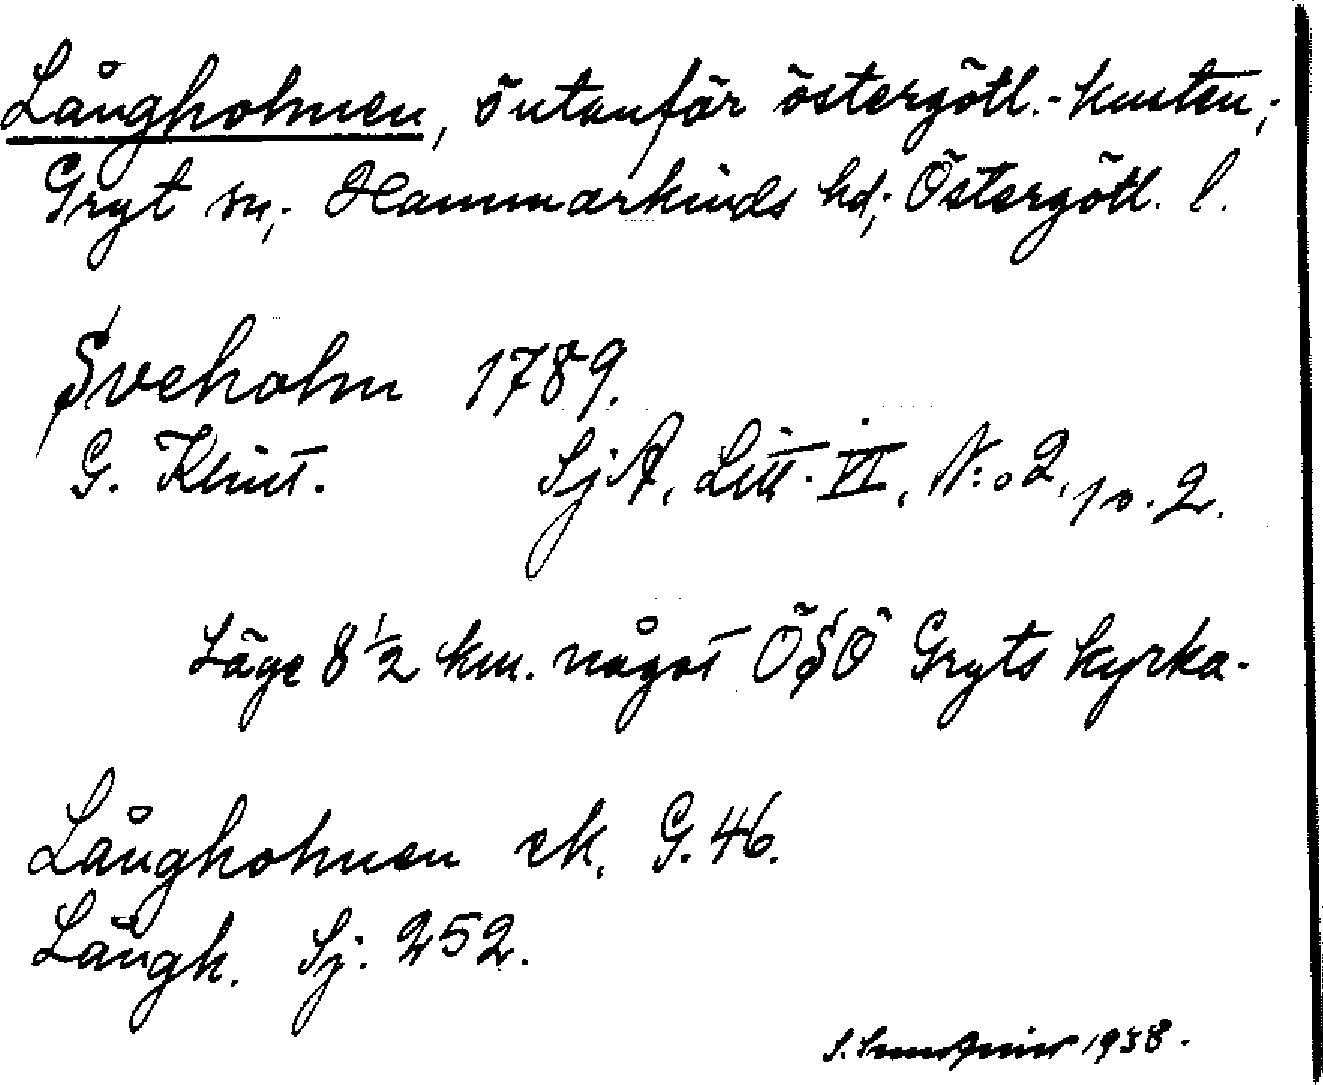 Långholmen, ö utanför östergötl.-kusten;
Gryt sn; Hammarkinds hd; Östergötl. l.
Sveholm 1789.
G. Klint. SjA, Litt. VI, N:o 2, p. 2.
Läge 8 1/2 km. något ÖSÖ Gryts kyrka.
Långholmen ek. G. 46.
Långh. Sj. 252.
S. 1938.